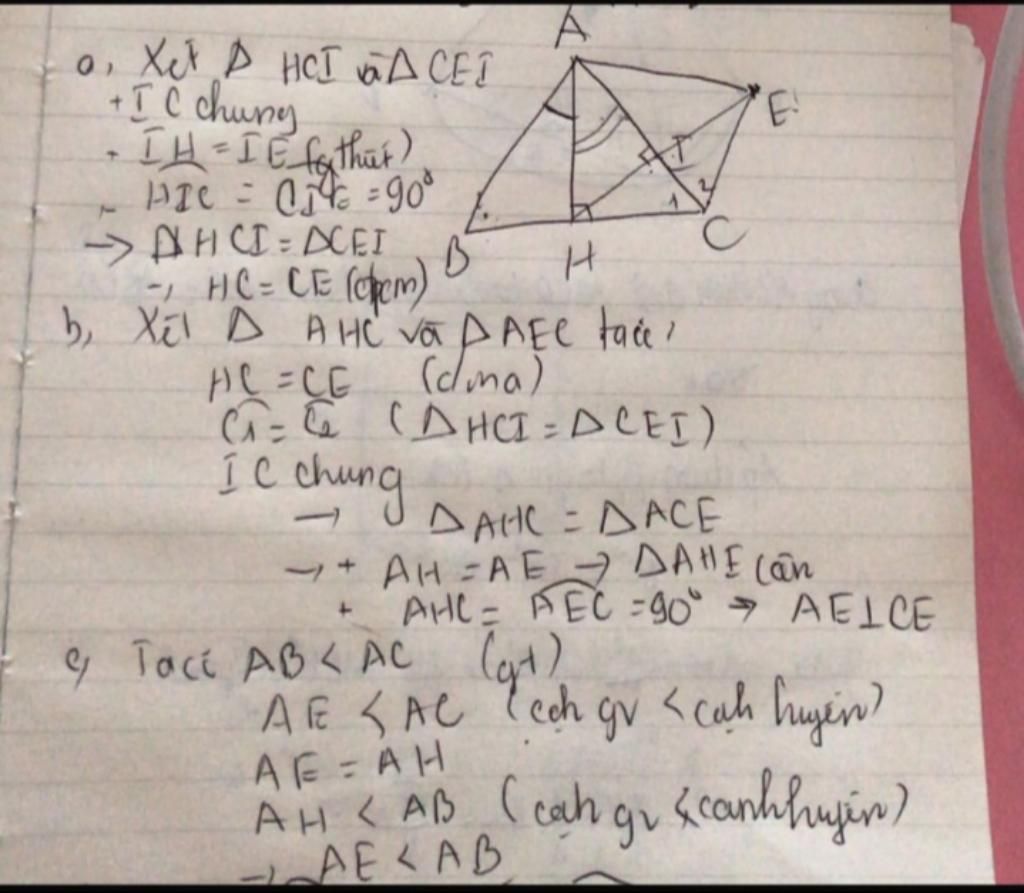 a, Xét Δ HCI và Δ CEI
+ IC chung
- IH = IE (g thiết)
- HIC = CIE = 90°
→ Δ HCI = ΔCEI
→ HC = CE (đpcm)
b, Xét Δ AHC và Δ AEC ta có:
HC = CE (cma)
C1 = C2 (Δ HCI = Δ CEI)
IC chung
→ Δ AHC = Δ ACE
→ + AH = AE → Δ AHE cân
+ AHC = AEC = 90° → AE ⊥ CE
c, Ta có AB < AC (gt)
AE < AC (cạh gv < cạh huyền)
AE = AH
AH < AB (cạh gv < canh huyền)
→ AE < AB
A
E
I
1
2
B
H
C